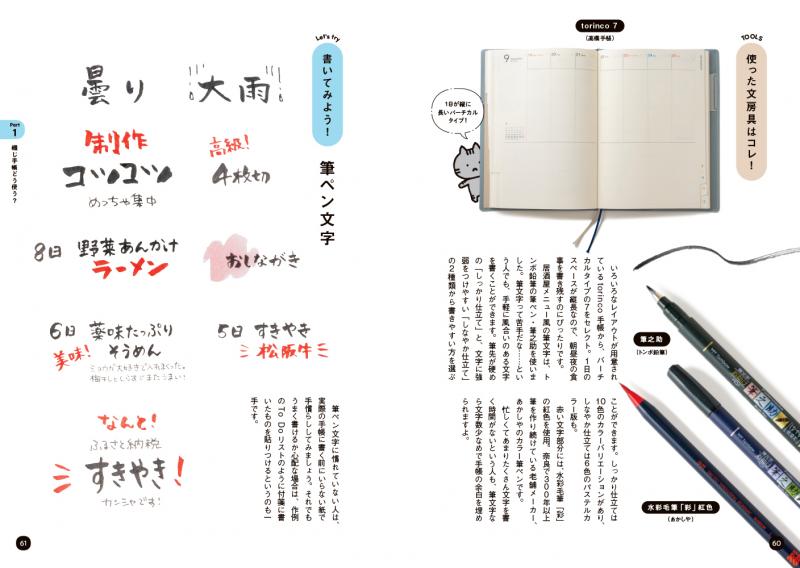 TOOLS
使った文房具はコレ！
torinco 7
（高橋手帳）
9
1日が縦に
長いバーチカル
タイプ！
いろいろなレイアウトが用意され
ているtorinco手帳から、バーチ
カルタイプの7をセレクト。1日の
スペースが縦長なので、朝昼夜の食
事を書き残すのにぴったりです。
居酒屋メニュー風の筆文字は、ト
ンボ鉛筆の筆ペン・筆之助を使いま
した。筆文字って苦手だな……とい
う人でも、手軽に風合いのある文字
を書くことができます。筆先が硬め
の「しっかり仕立て」と、文字に強
弱をつけやすい「しなやか仕立て」
の2種類から書きやすい方を選ぶ
ことができます。しっかり仕立ては
10色のカラーバリエーションがあり、
しなやか仕立ては6色のパステルカ
ラー版も。
赤い文字部分には、水彩毛筆「彩」
の紅色を使用。奈良で300年以上
筆を作り続けている老舗メーカー、
あかしやのカラー筆ペンです。
忙しくてあまりたくさん文字を書
く時間がないという人も、筆文字な
ら文字数少なめで手帳の余白を埋め
られますよ。
筆之助
（トンボ鉛筆）
筆之助
水彩毛筆「彩」紅色
（あかしや）
60
Let's try
書いてみよう！
筆ペン文字
大雨
曇り
高級！
4枚切
制作
コツコツ
めっちゃ集中
おしながき
8日 野菜あんかけ
ラーメン
5日 すきやき
松阪牛
6日 薬味たっぷり
そうめん
美味！
ミョウガ大好きで入れまくった。
梅干しとしらすでまたうまい！
なんと！
ふるさと納税
すきやき！
カンシャです！
筆ペン文字に慣れていない人は、
実際の手帳に書く前にいらない紙で
手慣らししてみましょう。それでも
うまく書けるか心配な場合は、作例
のTo Doリストのように付箋に書
いたものを貼りつけるというのも一
手です。
Part
1
綴じ手帳どう使う？
61